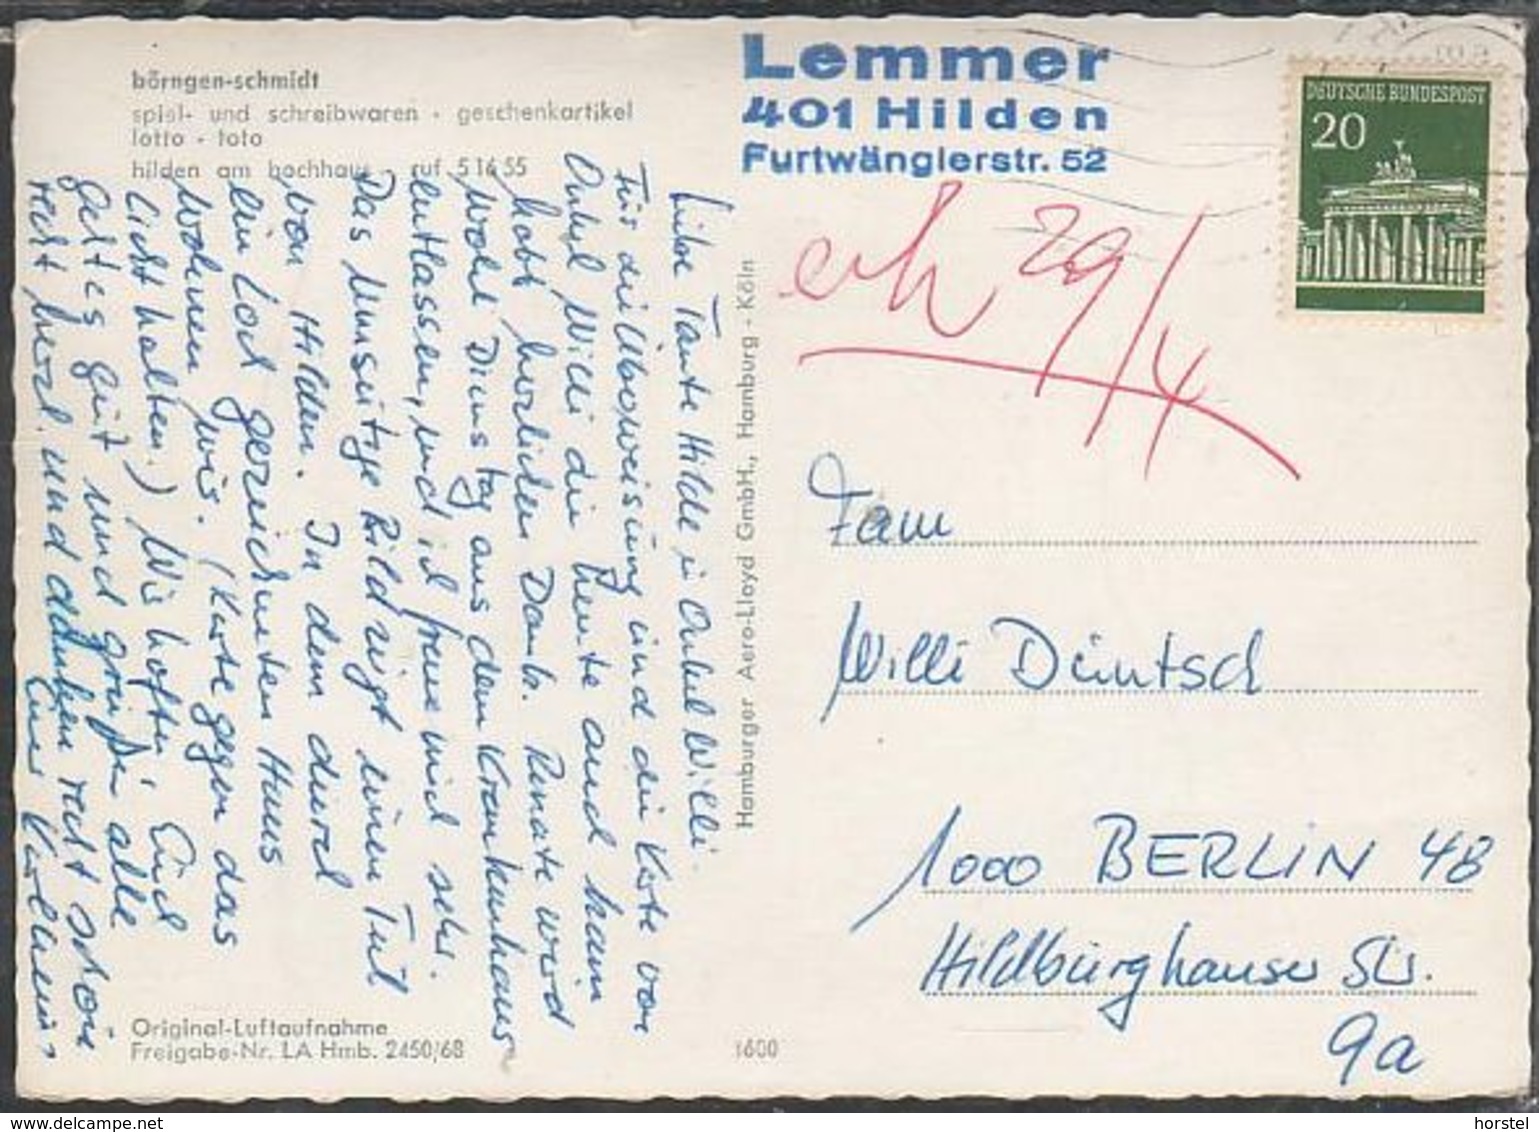 börngen-schmidt
spiel- und schreibwaren - geschenkartikel
lotto - toto
hilden am hochhaus - ruf 5 16 55
Lemmer
401 Hilden
Furtwänglerstr. 52
DEUTSCHE BUNDESPOST
20
erh 29/4
Liebe Tante Hilde u. Onkel Willi.
Für die Überweisung und die Karte von
Onkel Willi die heute auch kam
habt herzlichen Dank. Renate wird
wohl Dienstag aus dem Krankenhaus
entlassen, und ich freue mich sehr.
Das Umseitige Bild zeigt einen Teil
von Hilden. In dem durch
ein Loch gezeichneten Haus
wohnen wir. (Karte gegen das
Licht halten.) Wir hoffen, Euch
geht es gut und grüßen alle
recht herzl. und danken recht schön
Eure
Hamburger Aero-Lloyd GmbH., Hamburg - Köln
Fam
Willi Düntsch
1000 BERLIN 48
Hildburghauser Str.
9a
Original-Luftaufnahme
Freigabe-Nr. LA Hmb. 2450/68
1600
www.delcampe.net
horstel